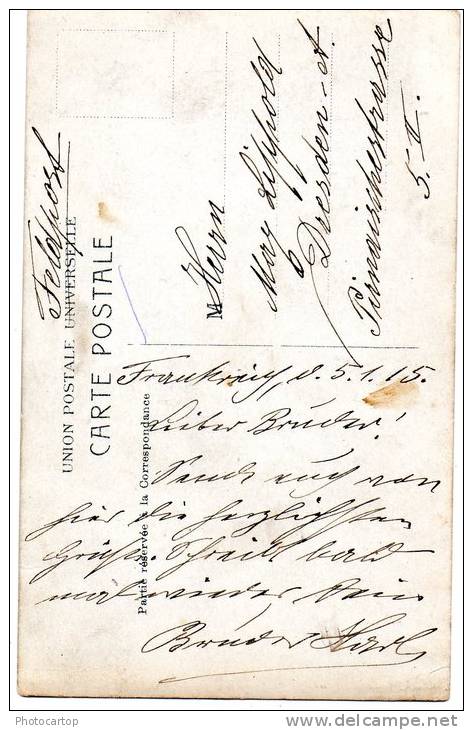 Feldpost
UNION POSTALE UNIVERSELLE
CARTE POSTALE
M
Herrn
Max Lippold
Dresden-A.
Pirnaischestrasse
5. II.
Partie réservée à la Correspondance
Frankreich, d. 5.1.15.
Lieber Bruder!
Sende euch von
hier die herzlichsten
Grüße. Schreibt bald
mal wieder. Dein
Bruder Karl
Photocartop
delcampe.net